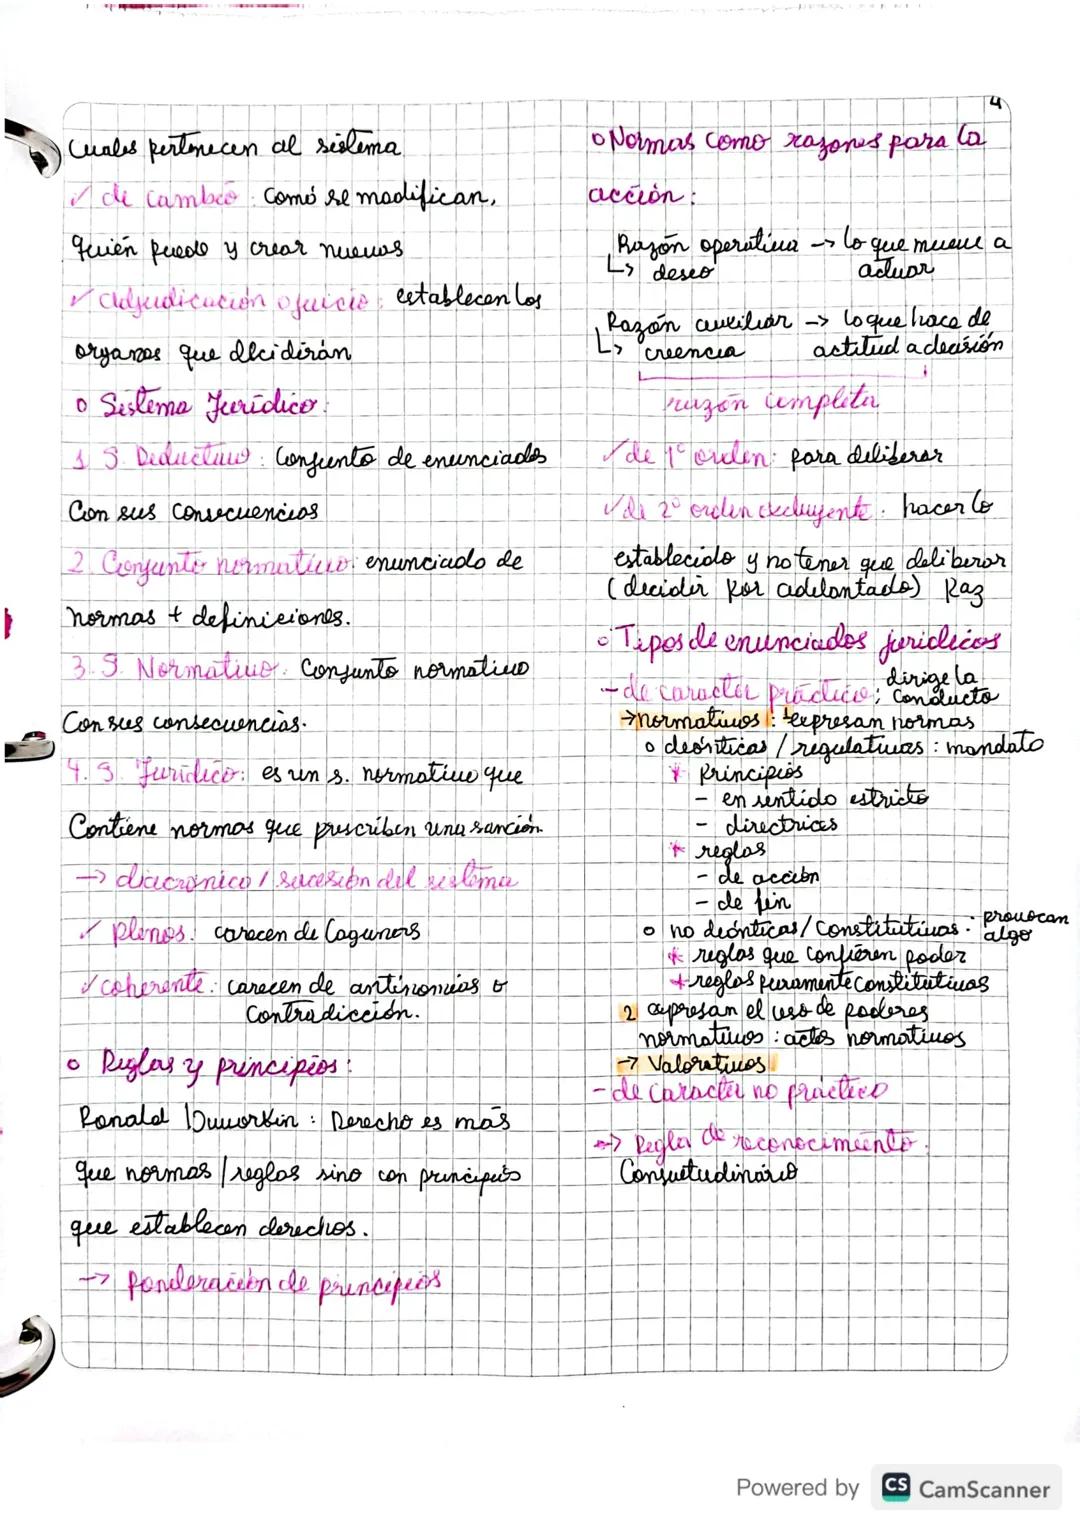 4
Cuales pertenecen al sistema
✓ de cambio: Como se modifican,
quién puede y crear nuevas
✓ adjudicación o juicio: establecen los
organos que decidirán
o Sistema Jurídico:
1 S. Deductivo: Conjunto de enunciados
Con sus consecuencias
2. Conjunto normativo: enunciado de
normas + definiciones.
3. S. Normativo: Conjunto normativo
Con sus consecuencias.
4. S. Jurídico: es un s. normativo que
Contiene normas que prescriben una sanción.
-> diacrónico / sucesión del sistema
✓ plenos: carecen de lagunas
✓ coherente: carecen de antinomias o
Contradicción.
o Reglas y principios:
Ronald Dworkin: Derecho es más
que normas / reglas sino con principios
que establecen derechos.
-> Ponderación de principios
o Normas como razones para la
acción:
Razón operativa -> lo que mueve a
↳ deseo actuar
Razón auxiliar -> lo que hace de
↳ creencia actitud a decisión
razón completa
✓ de 1º orden: para deliberar
✓ de 2º orden excluyente: hacer lo
establecido y no tener que deliberar
(decidir por adelantado) Raz
o Tipos de enunciados jurídicos
- de caracter práctico: dirige la
conducta
-> normativos: 1 expresan normas
o deónticas / regulativas: mandato
* Principios
- en sentido estricto
- directrices
* reglas
- de acción
- de fin
o no deónticas / Constitutivas: provocan
algo
* reglas que confieren poder
* reglas puramente constitutivas
2 expresan el uso de poderes
normativos: actos normativos
-> Valorativos
- de caracter no práctico
-> Regla de reconocimiento:
Consuetudinario
Powered by CS CamScanner